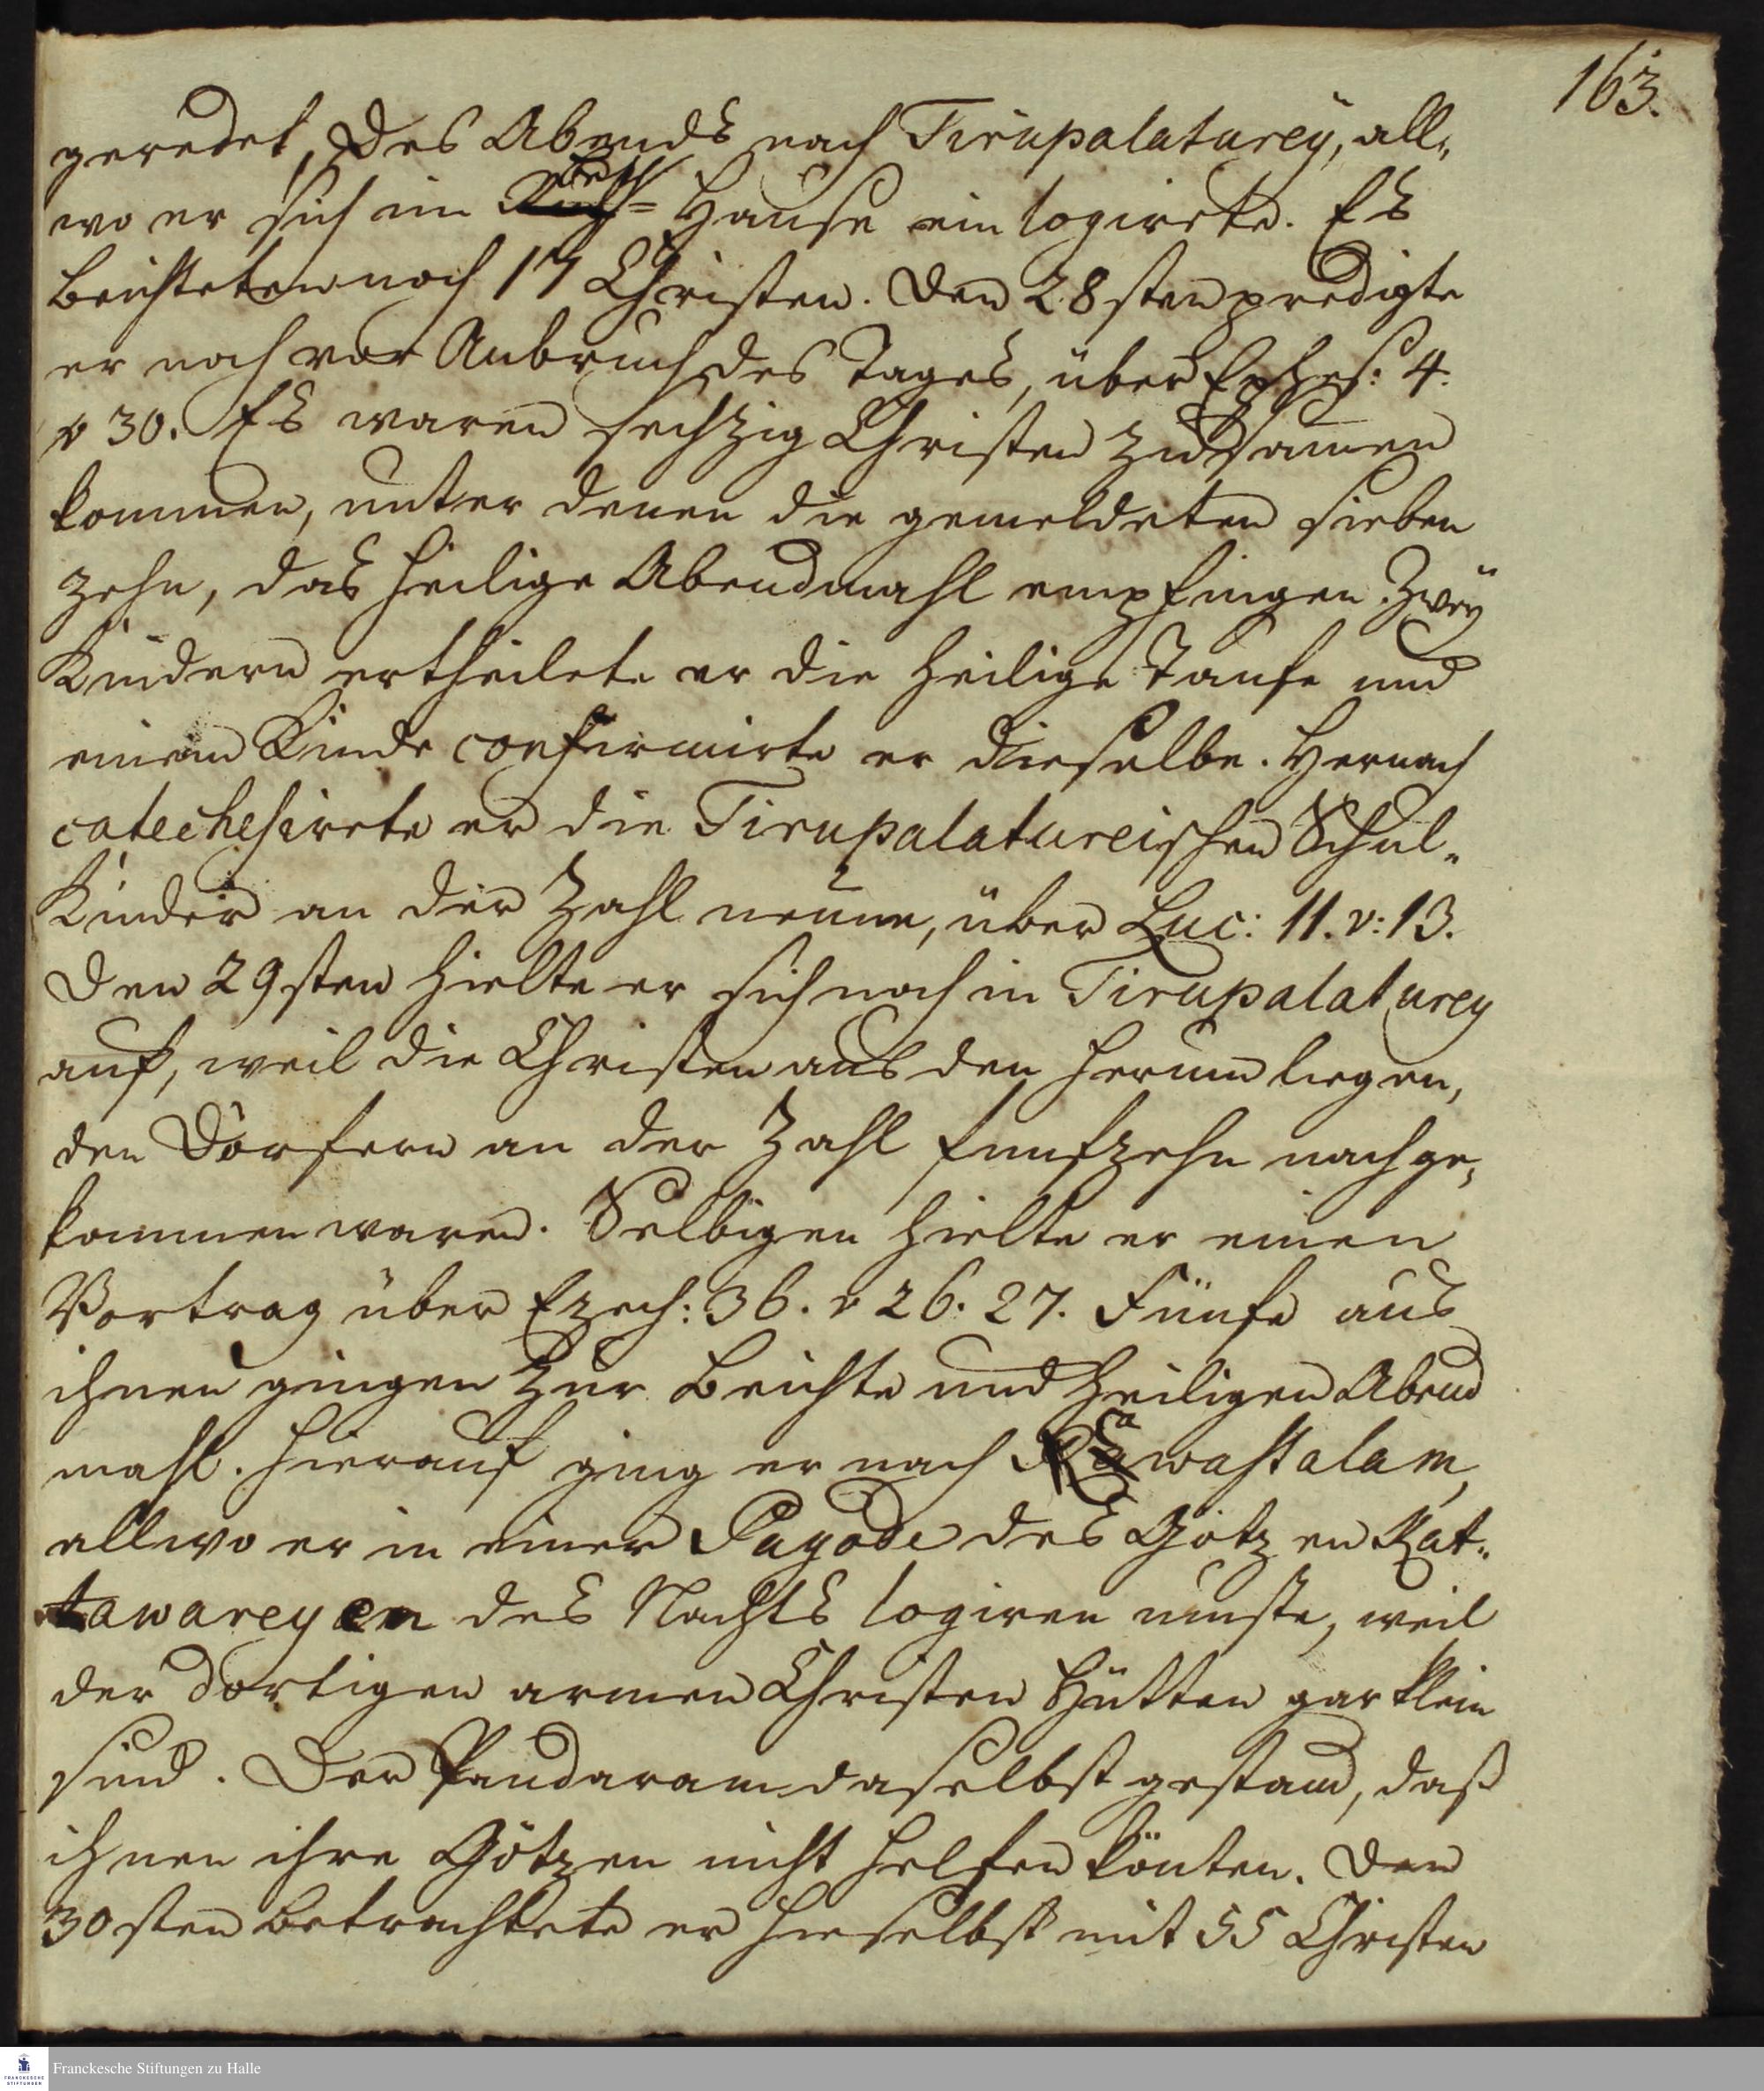 163.
geredet, des Abends nach Tirupalaturey, all-
wo er sich im Hause ein logirete. Es
beichteten noch 17 Christen. Den 28sten predigte
er noch vor Anbruch des Tages, über Ephes: 4.
v 30. Es waren sechzig Christen zusammen
kommen, unter denen die gemeldeten sieben
zehn, das heilige Abendmahl empfingen. Zwey
Kindern ertheilete er die heilige Taufe und
einem Kinde confirmirte er dieselbe. Hernach
catechesirete er die Tirupalatureischen Schul-
Kinder an der Zahl neune, über Luc: 11. v: 13.
Den 29sten hielte er sich noch in Tirupalaturey
auf, weil die Christen aus den herum liegen-
den Dörfern an der Zahl funfzehn nach ge-
kommen waren. Selbigen hielte er einen
Vortrag über Ezech: 36. v 26. 27. Fünfe aus
ihnen gingen zur Beichte und heiligen Abend
mahl. Hierauf ging er nach wastalam,
allwo er in einer Pagode des Götzen Kat-
tawareyen des Nachts logiren muste, weil
der dortigen armen Christen Hütten gar klein
sind. Der Pandaram daselbst gestand, daß
ihnen ihre Götzen nicht helfen könten. Den
30sten betrachtete er hieselbst mit 55 Christen
FRANCKESCHE
STIFTUNGEN
Franckesche Stiftungen zu Halle